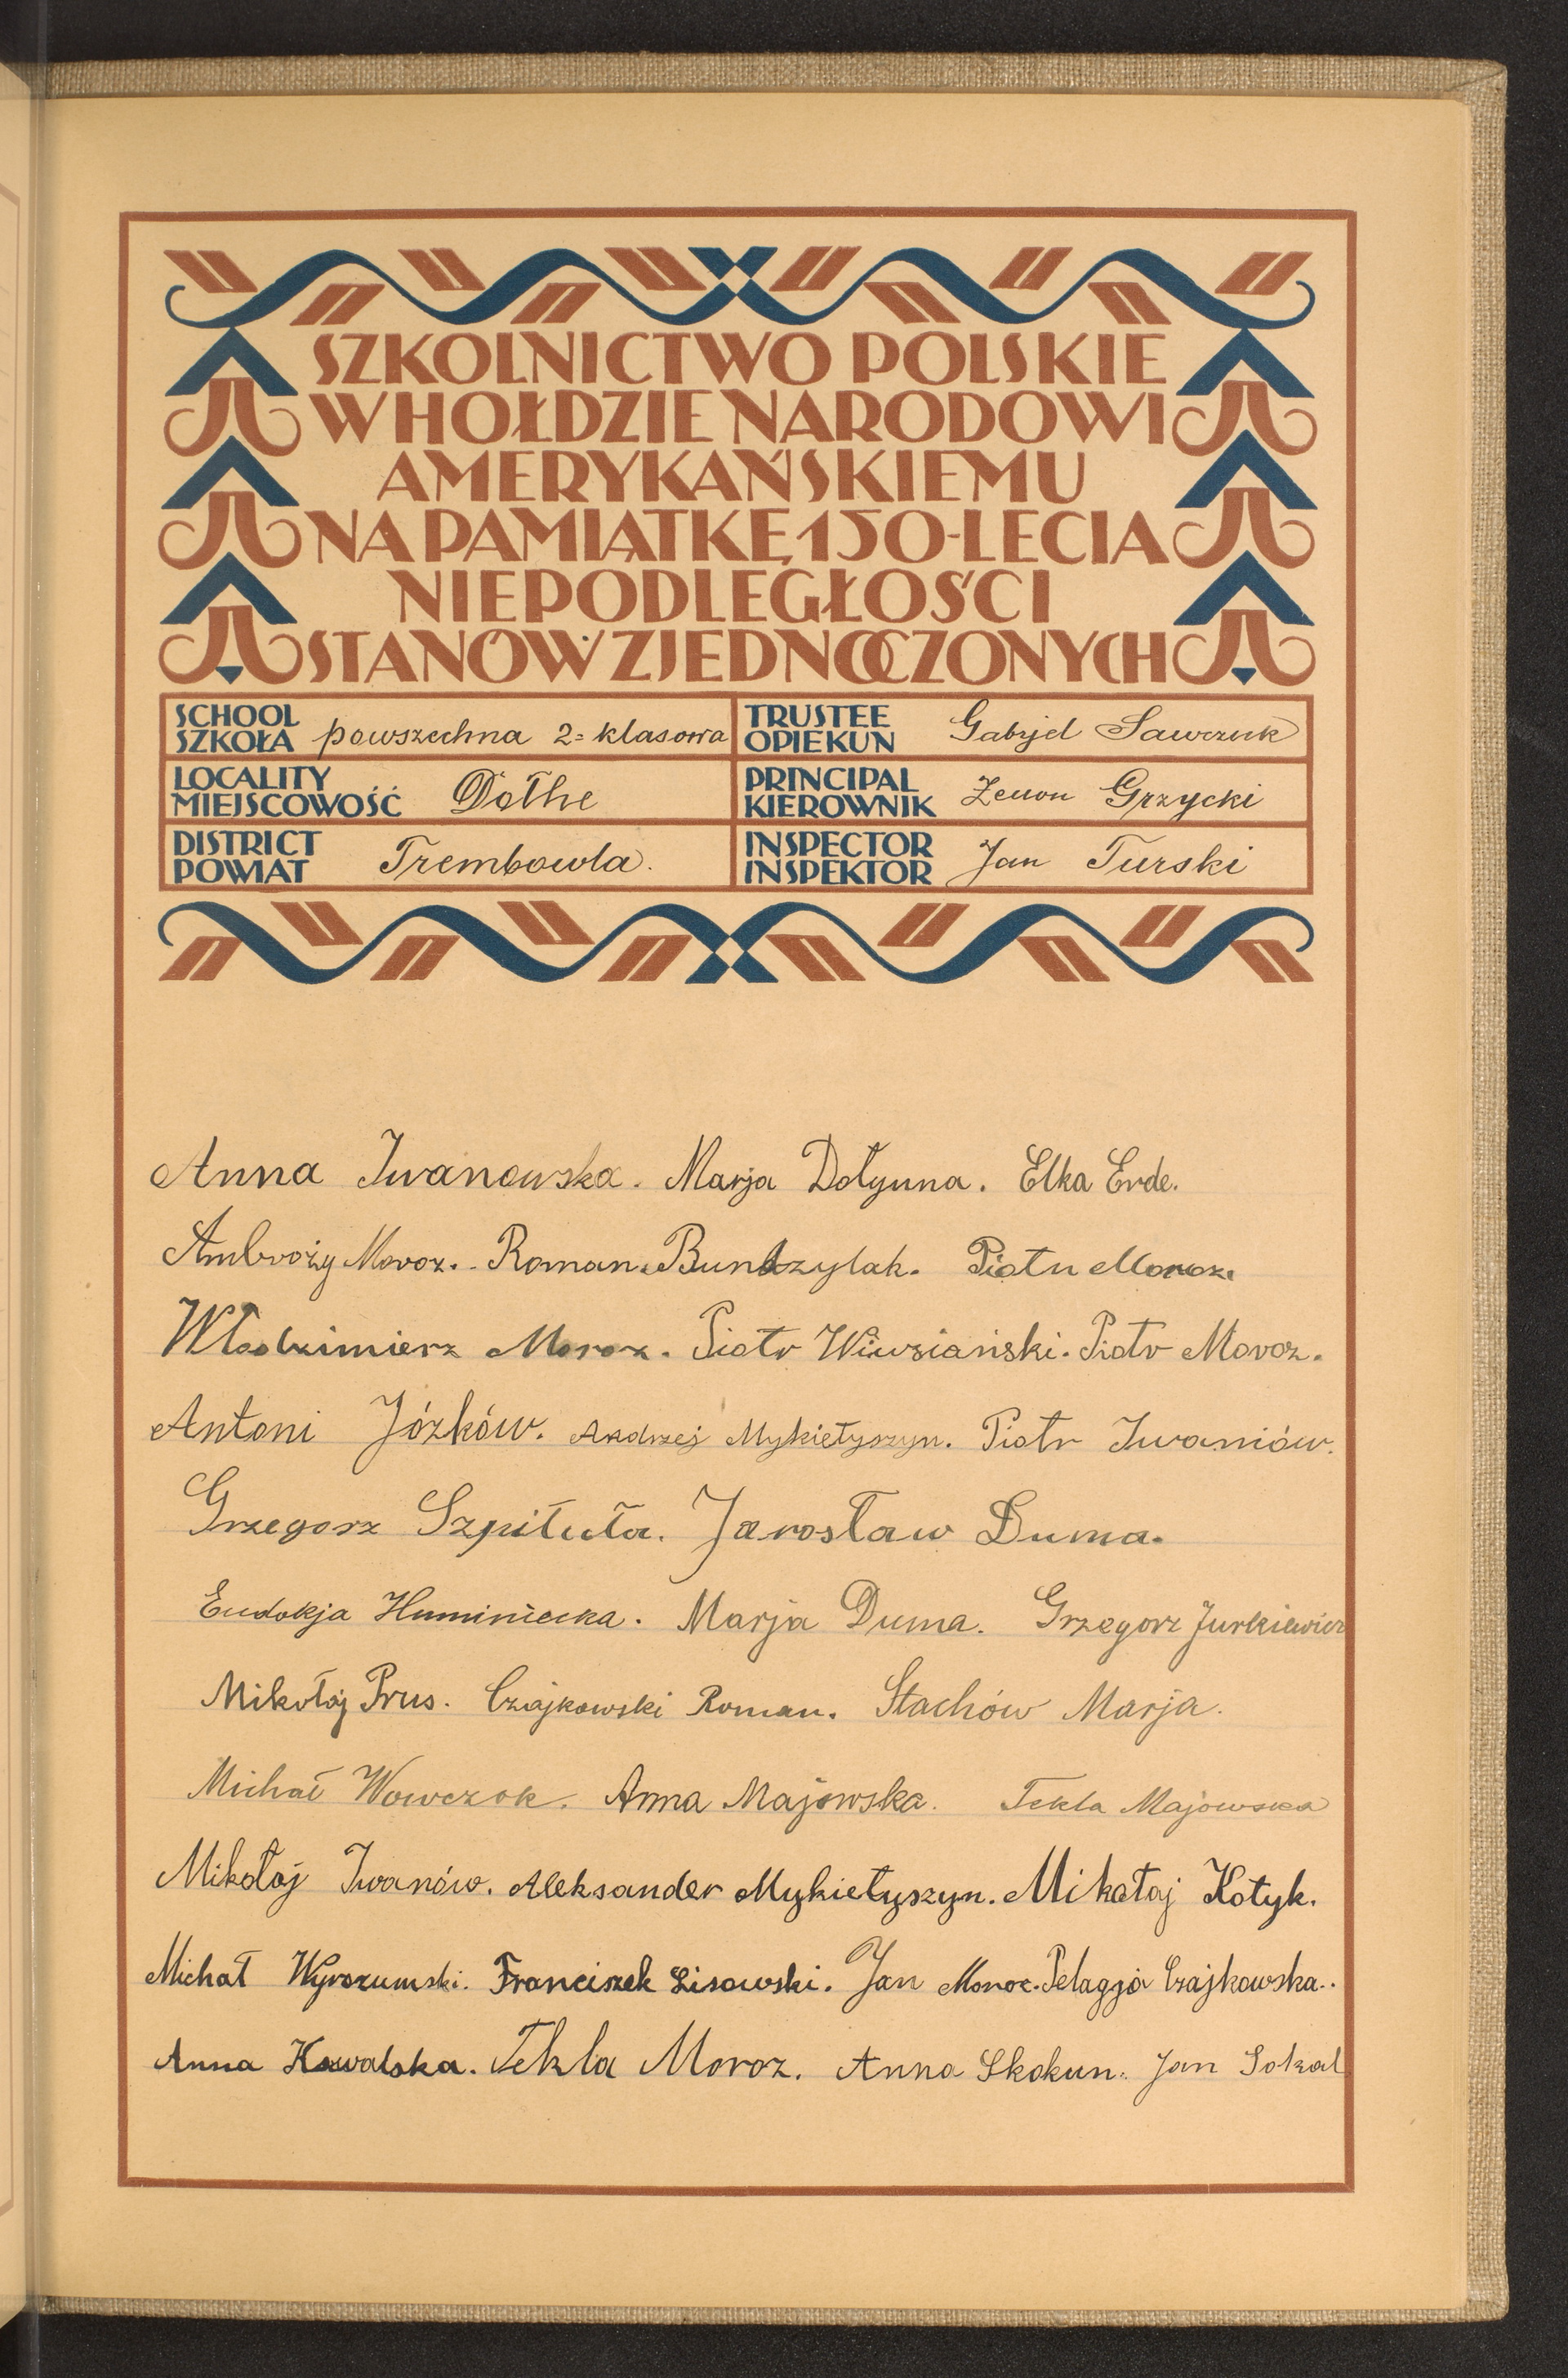 SZKOLNICTWO POLSKIE
W HOŁDZIE NARODOWI
AMERYKAŃSKIEMU
NA PAMIĄTKĘ 150-LECIA
NIEPODLEGŁOŚCI
STANÓW ZJEDNOCZONYCH
SCHOOL
SZKOŁA powszechna 2=klasowa
TRUSTEE
OPIEKUN Gabrjel Sawczuk
LOCALITY
MIEJSCOWOŚĆ Dołhe
PRINCIPAL
KIEROWNIK Zenon Grzycki
DISTRICT
POWIAT Trembowla.
INSPECTOR
INSPEKTOR Jan Turski
Anna Iwanowska. Marja Dołynna. Elka Erde.
Ambroży Moroz. Roman Bundzylak. Piotr Moroz.
Włodzimierz Moroz. Piotr Wiwsiański. Piotr Moroz.
Antoni Józków. Andrzej Mykietyszyn. Piotr Iwaniów.
Grzegorz Szpituła. Jarosław Duma.
Eudokja Huminiecka. Marja Duma. Grzegorz Jurkiewicz
Mikołaj Prus. Czajkowski Roman. Stachów Marja.
Michał Wowczok. Anna Majowska. Tekla Majowska
Mikołaj Iwanów. Aleksander Mykietyszyn. Mikołaj Kotyk.
Michał Wyrozumski. Franciszek Lisowski. Jan Moroz. Pelagja Czajkowska..
Anna Kowalska. Tekla Moroz. Anna Skokun. Jan Sokal